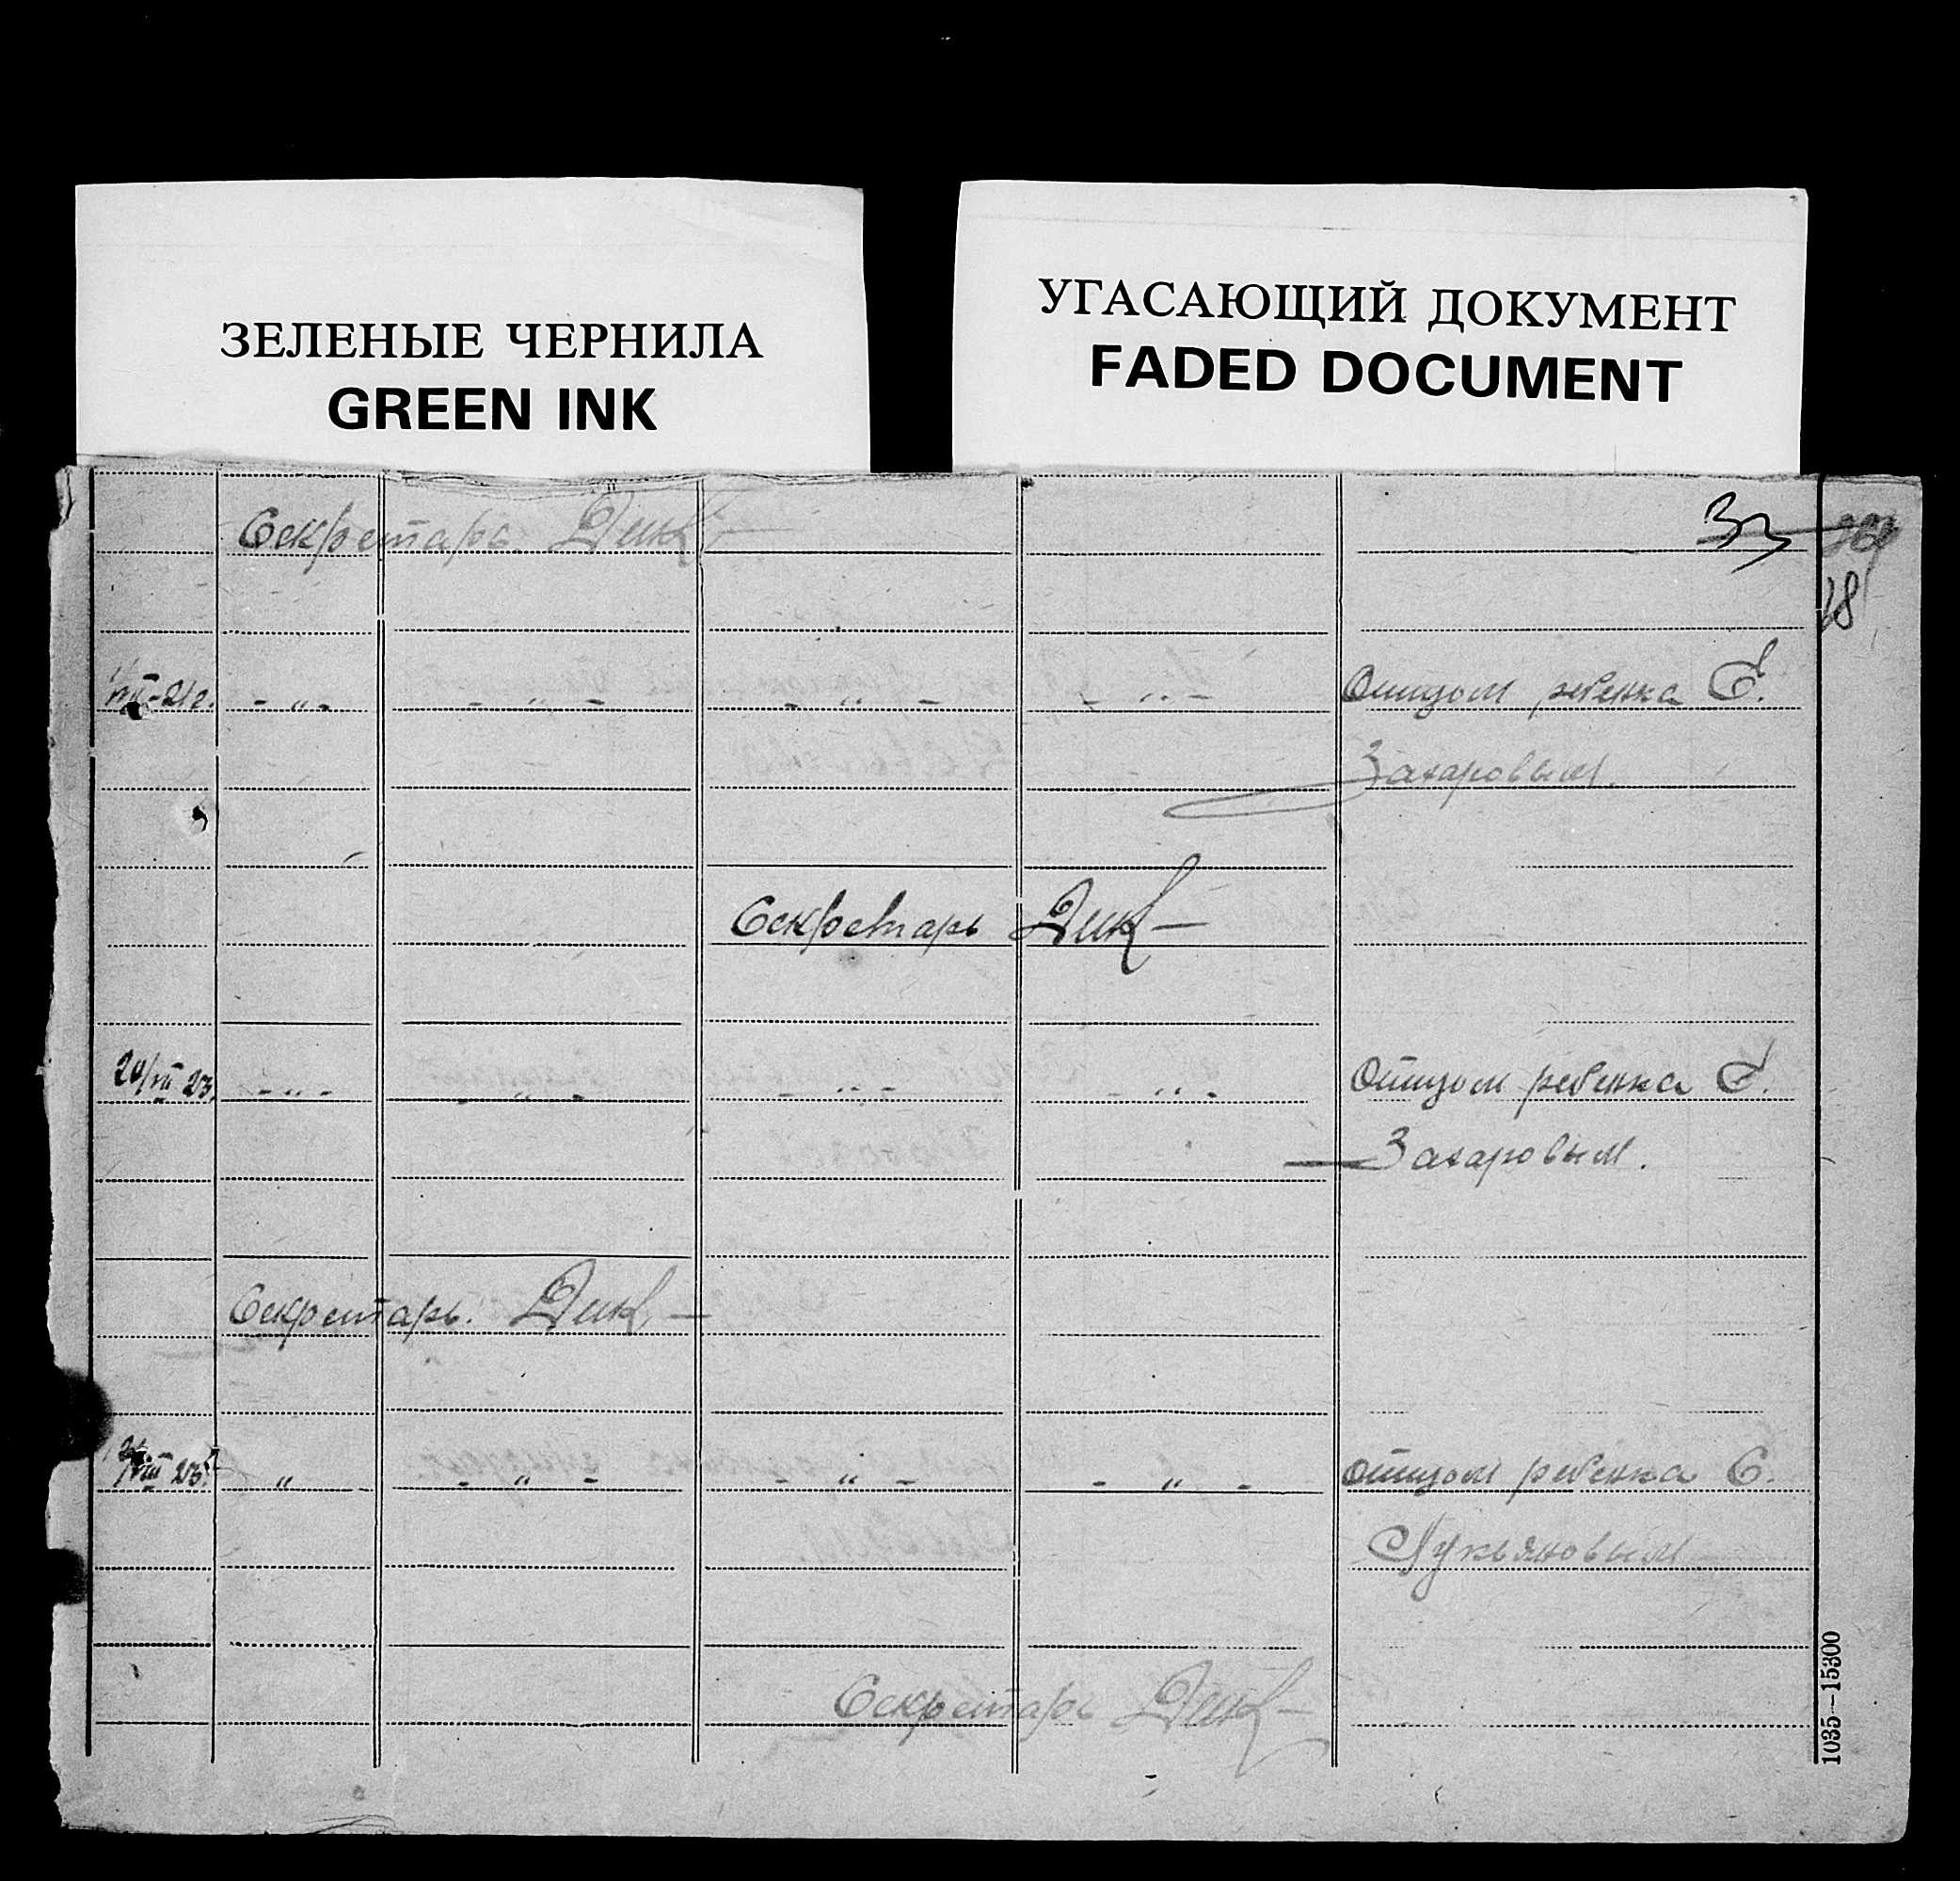 ЗЕЛЕНЫЕ ЧЕРНИЛА
GREEN INK
УГАСАЮЩИЙ ДОКУМЕНТ
FADED DOCUMENT
Секретарь. Дик
33
18
- „ - - „ - - „ - - „ - Отцом ребенка С.
Захаровым.
Секретарь Дик
20/VIII 23. - „ - - „ - - „ - - „ - Отцом ребенка С.
Захаровым.
Секретарь. Дик
VIII 23 „ - „ - - „ - - „ - Отцом ребенка С.
Лукьяновым
Секретарь Дик
1035—15300